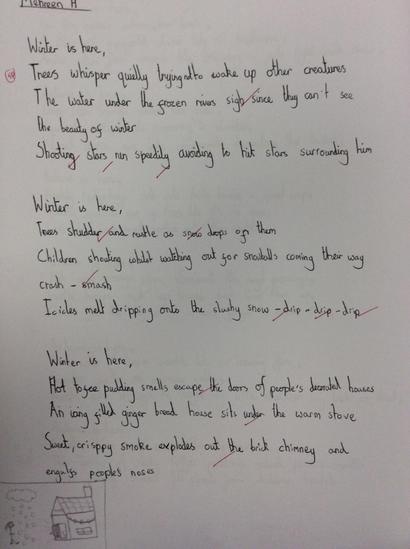 Mehreen A
Winter is here,
Trees whisper quietly trying not to wake up other creatures
The water under the frozen rivers sigh since they can't see
the beauty of winter
Shooting stars run speedily avoiding to hit stars surrounding him
Winter is here,
Trees shudder and rustle as snow drops off them
Children shouting whilst watching out for snowballs coming their way
crash - smash
Icicles melt dripping onto the slushy snow - drip - drip - drip
Winter is here,
Hot toffee pudding smells escape the doors of people's decorated houses
An icing filled ginger bread house sits under the warm stove
Sweet, crisppy smoke explodes out the brick chimney and
engulfs peoples noses